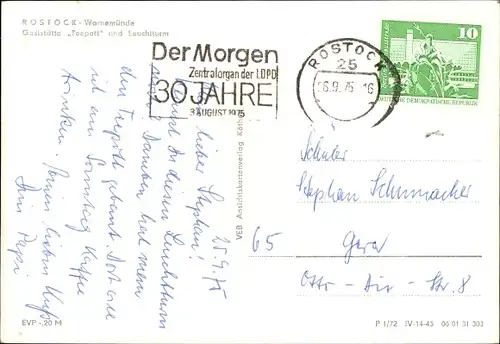 ROSTOCK - Warnemünde
Gaststätte „Teepott" und Leuchtturm
Der Morgen
Zentralorgan der LDPD
30 JAHRE
3. AUGUST 1975
ROSTOCK
25
10
DEUTSCHE DEMOKRATISCHE REPUBLIK
25.9.75
lieber Stephan!
Kennst Du diesen Leuchtturm
Daneben hat man
den Teepott gebaut. Dort will
ich am Sonntag Kaffee
trinken. Einen lieben Kuß
Dein Papi
VEB Ansichtskartenverlag Köthen
Schüler
Stephan Schumacher
65 Gera
Otto-Dix-Str. 8
EVP -,20 M
P 1/72 IV-14-45 06 01 31 303